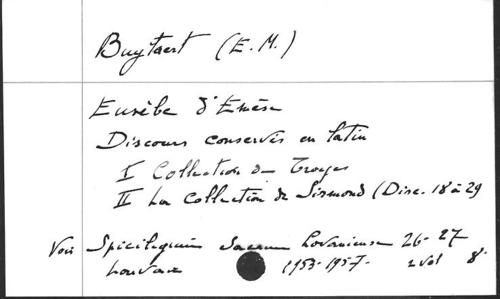 Buytaert (E. M.)
Eusèbe d'Emèse
Discours conservés en latin
I Collection de Troyes
II La Collection de Sirmond (Disc. 18 à 29
Voir Spicilegium Sacrum Lovaniense 26-27
Louvain 1953-1957. 2 vol 8°